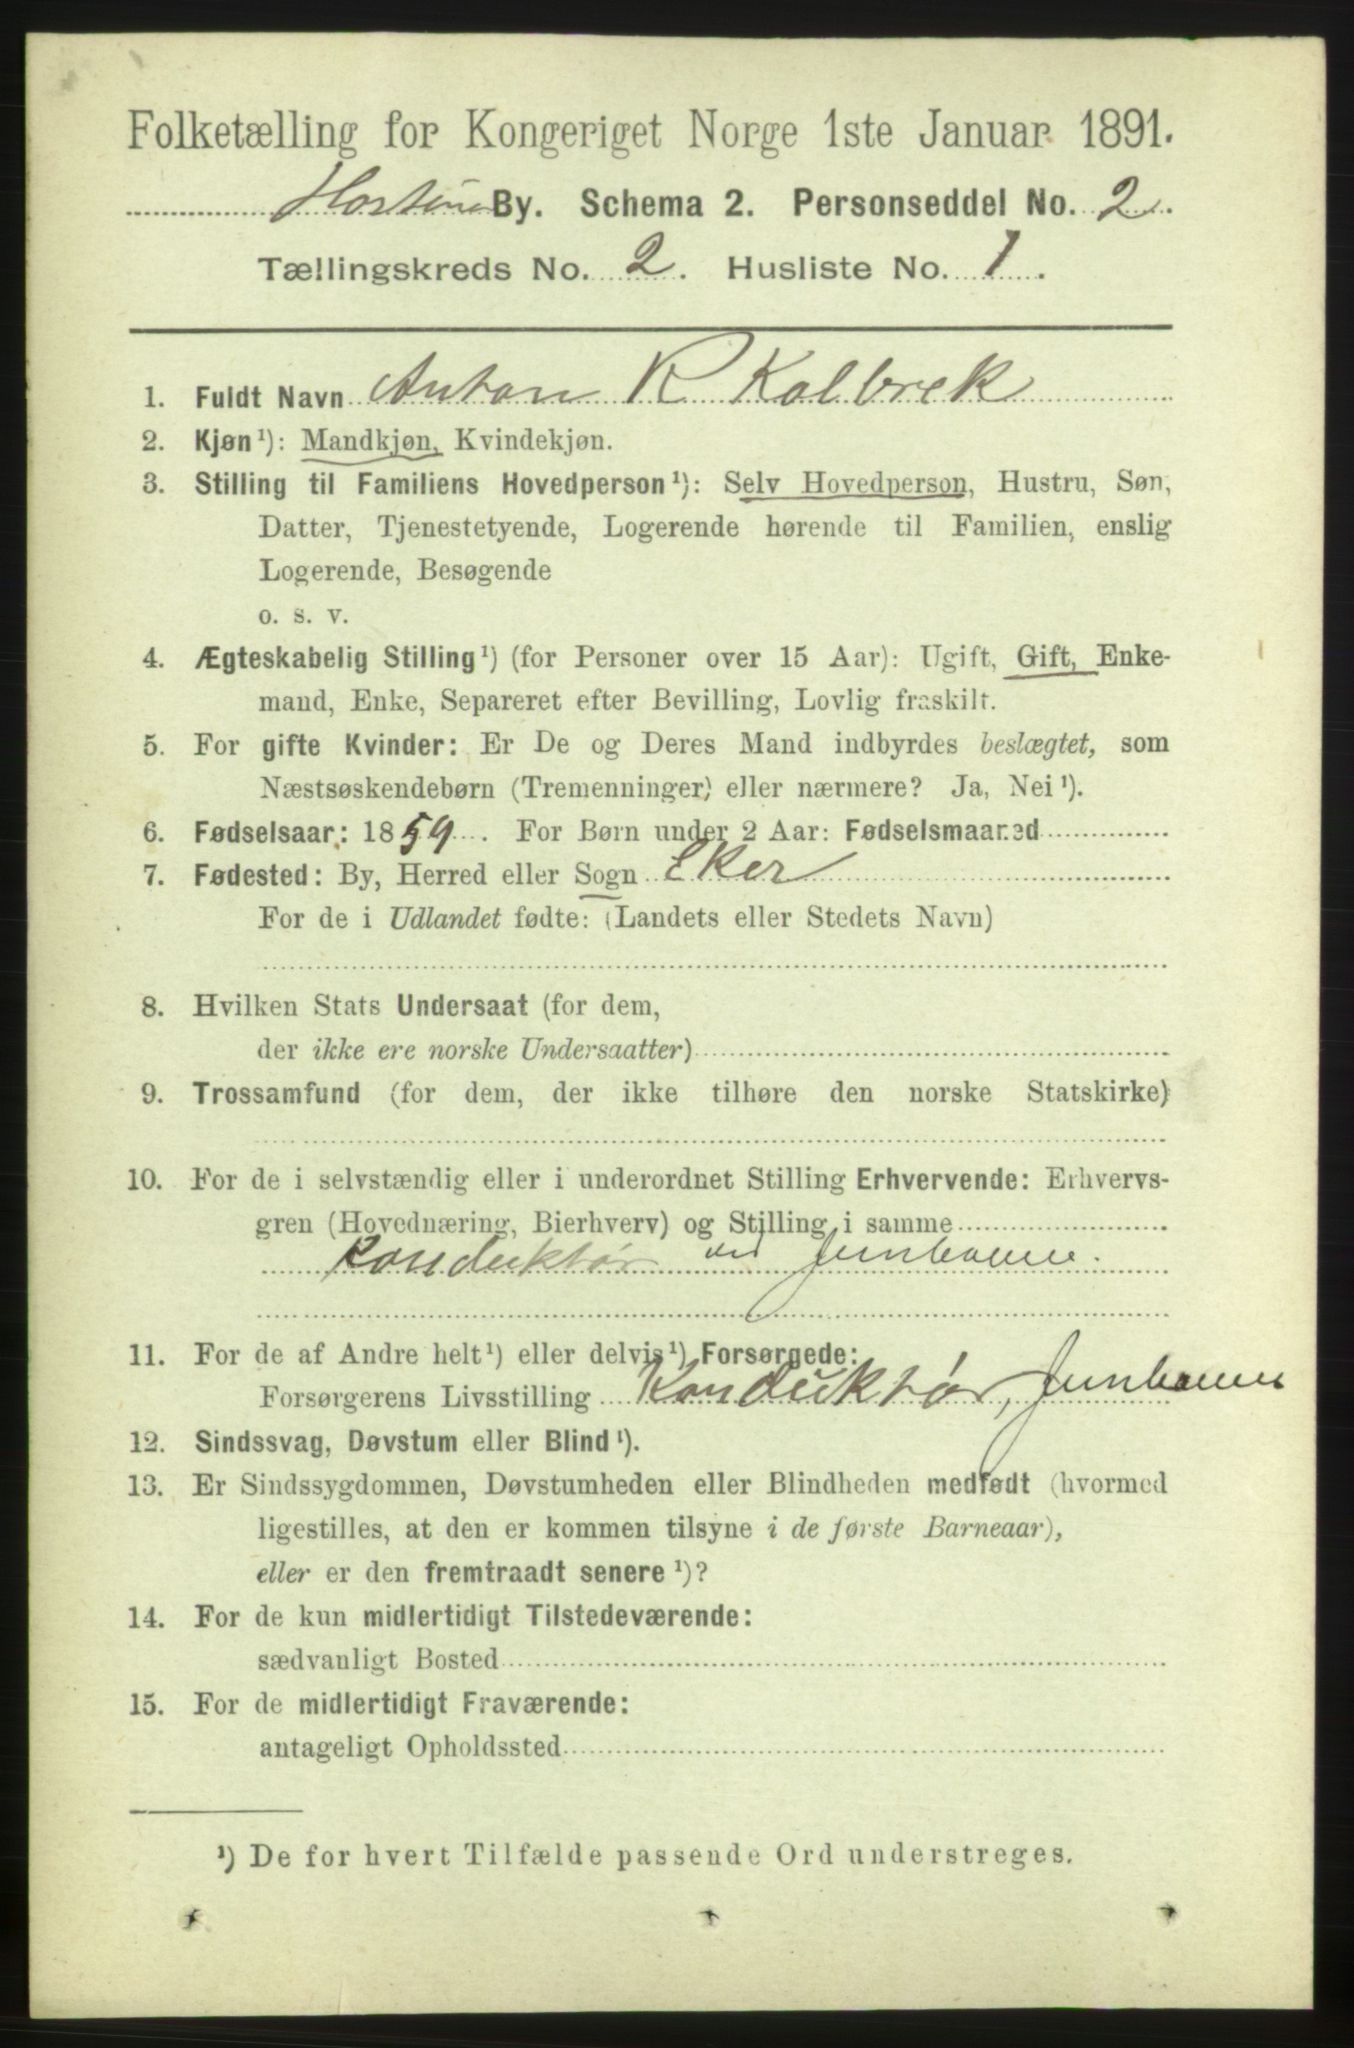 Folketælling for Kongeriget Norge 1ste Januar 1891.
Hortens By. Schema 2. Personseddel No. 2.
Tællingskreds No. 2. Husliste No. 1.
1. Fuldt Navn Anton R Kolbrek
2. Kjøn ¹): Mandkjøn, Kvindekjøn.
3. Stilling til Familiens Hovedperson ¹): Selv Hovedperson, Hustru, Søn,
Datter, Tjenestetyende, Logerende hørende til Familien, enslig
Logerende, Besøgende
o. s. v.
4. Ægteskabelig Stilling ¹) (for Personer over 15 Aar): Ugift, Gift, Enke-
mand, Enke, Separeret efter Bevilling, Lovlig fraskilt.
5. For gifte Kvinder: Er De og Deres Mand indbyrdes beslægtet, som
Næstsøskendebørn (Tremenninger) eller nærmere? Ja, Nei ¹).
6. Fødselsaar: 1859. For Børn under 2 Aar: Fødselsmaaned
7. Fødested: By, Herred eller Sogn Eker
For de i Udlandet fødte: (Landets eller Stedets Navn)
8. Hvilken Stats Undersaat (for dem,
der ikke ere norske Undersaatter)
9. Trossamfund (for dem, der ikke tilhøre den norske Statskirke)
10. For de i selvstændig eller i underordnet Stilling Erhvervende: Erhvervs-
gren (Hovednæring, Bierhverv) og Stilling i samme
Konduktør ved Jernbanen.
11. For de af Andre helt ¹) eller delvis ¹) Forsørgede:
Forsørgerens Livsstilling Konduktør, Jernbanen
12. Sindssvag, Døvstum eller Blind ¹).
13. Er Sindssygdommen, Døvstumheden eller Blindheden medfødt (hvormed
ligestilles, at den er kommen tilsyne i de første Barneaar),
eller er den fremtraadt senere ¹)?
14. For de kun midlertidigt Tilstedeværende:
sædvanligt Bosted
15. For de midlertidigt Fraværende:
antageligt Opholdssted
¹) De for hvert Tilfælde passende Ord understreges.